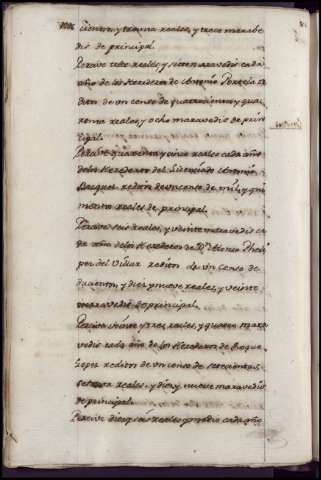 cientos, y treinta reales, y trece marabe
dis de principal.
Percive siete reales, y siete maravedis cada
año de los herederos de Antonio
ditos de un censo de quatrocientos y qua
renta reales, y ocho maravedis de prin
cipal.
Percive quarenta y cinco reales cada año
de los herederos del Lizenciado Antonio
Bazquez reditos de un censo de mil, y qui
nientos reales de principal.
Percive seis reales, y veinte maravedis ca
da año de los herederos de
per del Villar reditos de un censo de
ducientos, y diez y nueve reales, y veinte
maravedis de principal.
Percive veinte y tres reales, y quatro mara
vedis cada año de los herederos de Roque
Lopez reditos de un censo de setecientos,
setenta reales, y diez y nueve maravedis
de principal.
Percive diez y seis reales y medio cada año